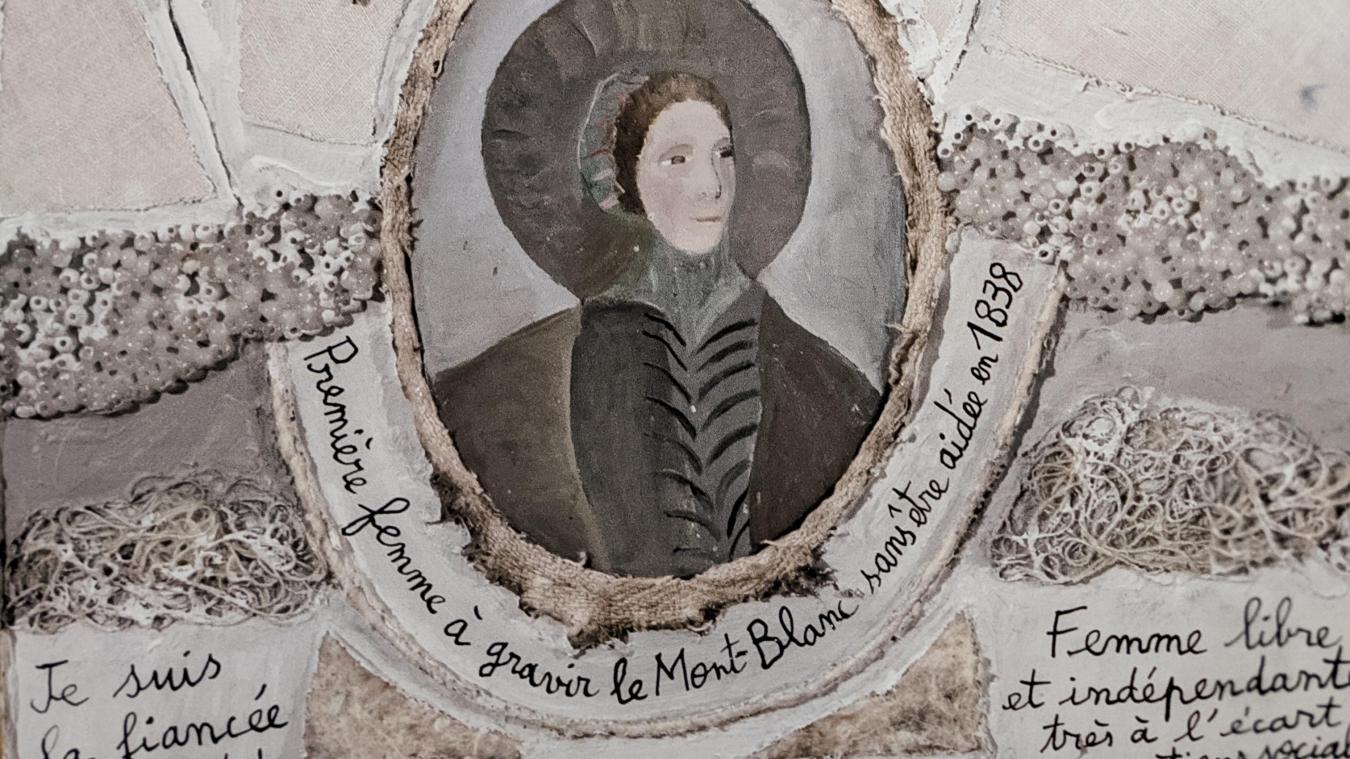 Première femme à gravir le Mont-Blanc sans être aidée en 1838
Je suis
la fiancée
Femme libre
et indépendante
très à l'écart